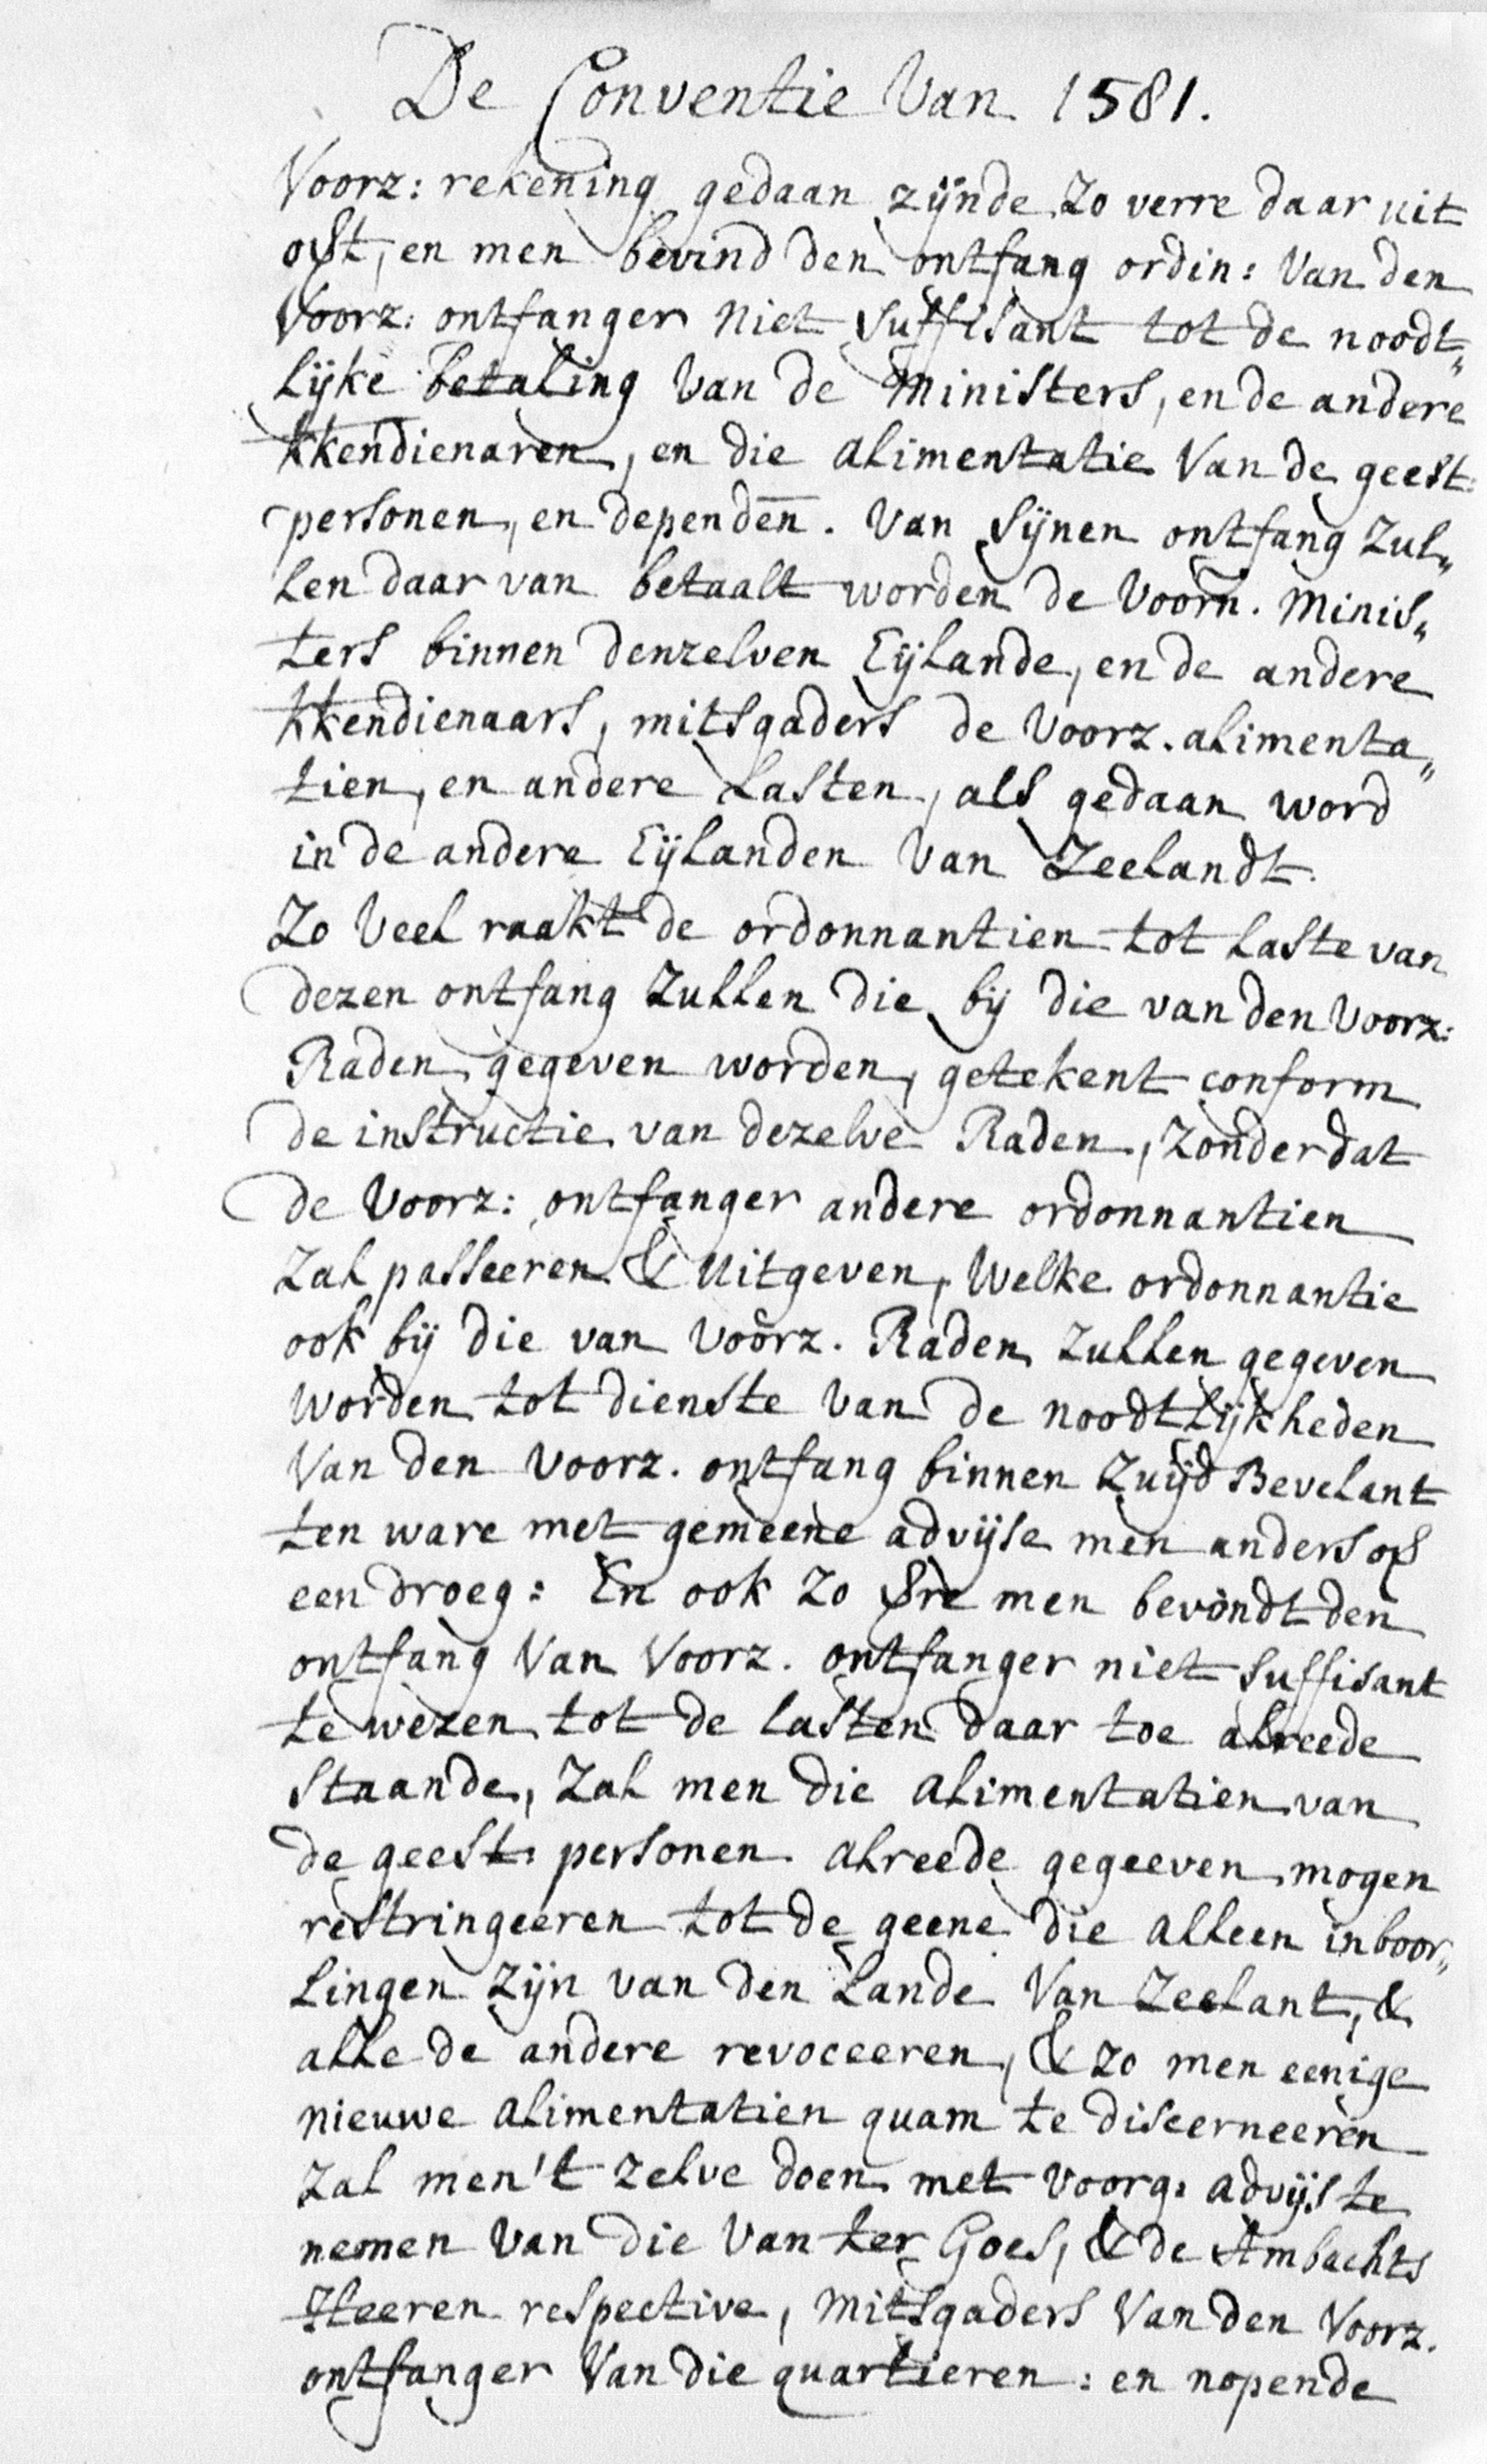 De Conventie Van 1581.
Voorz: rekening gedaan zijnde Zo verre daar uit
en men bevind den ontfang ordin: Van den
Voorz: ontfanger niet suffisant tot de noodt„
lijke betaling Van de Ministers, en de andere
kkendienaren, en die alimentatie Van de geest:
personen, en dependen̄. Van sijnen ontfang Zul„
len daar van betaalt worden de Voorn̄. Minis„
ters binnen denzelven Eijlande, en de andere
kkendienaars, mitsgaders de Voorz. alimenta„
tien, en andere Lasten, als gedaan word
in de andere Eijlanden Van Zeelandt.
Zo Veel raakt de ordonnantien tot Laste van
dezen ontfang Zullen die bij die van den Voorz:
Raden gegeven worden, getekent conform
de instructie van dezelve Raden, Zonder dat
de Voorz: ontfanger andere ordonnantien
Zal passeeren & uitgeven, Welke ordonnantie
ook bij die van Voorz. Raden Zullen gegeven
worden tot dienste Van de noodtlijkheden
Van den Voorz. ontfang binnen Zuijd Bevelant
ten ware met gemeene advijse men anders
een droeg: En ook Zo men bevondt den
ontfang Van Voorz. ontfanger niet suffisant
te wezen tot de lasten daar toe alreede
staande, Zal men die alimentatien van
de geest: personen alreede gegeeven mogen
restringeeren tot de geene die alleen inboor„
lingen Zijn van den Lande Van Zeelant, &
alle de andere revoceeren, & zo men eenige
nieuwe alimentatien quam te discerneeren
Zal men't zelve doen met voorg: advijs te
nemen Van die Van ter Goes, & de Ambachts
Heeren respective, mitsgaders Van den Voorz.
ontfanger Van die quartieren: en nopende